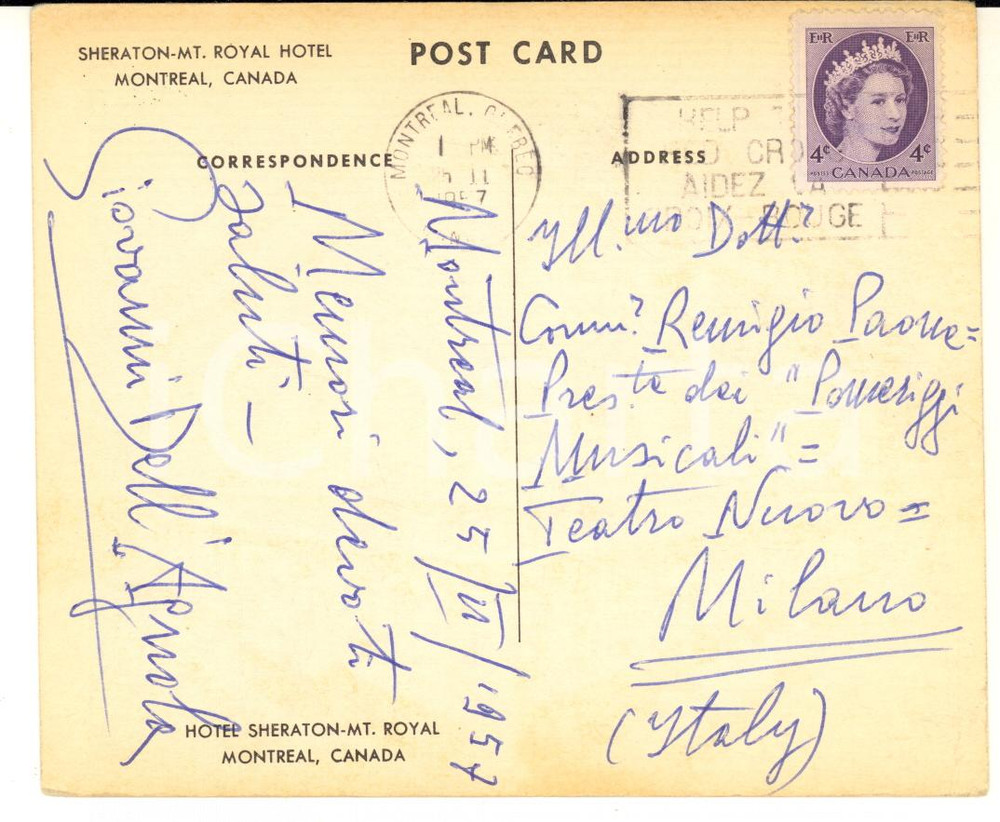 SHERATON-MT. ROYAL HOTEL
MONTREAL, CANADA
POST CARD
CORRESPONDENCE
ADDRESS
MONTREAL, QUEBEC
1 PM
1957
HELP
CRO
AIDEZ LA
CROIX ROUGE
EIIR EIIR
4¢ 4¢
POSTES CANADA POSTAGE
Montreal, 25/III/1957
Memori devoti
saluti –
Giovanni Dell'Agnola
Ill.mo Dott.r
Comm.r Remigio Paone=
Pres.te dei "Pomeriggi
Musicali"=
Teatro Nuovo=
Milano
(Italy)
HOTEL SHERATON-MT. ROYAL
MONTREAL, CANADA